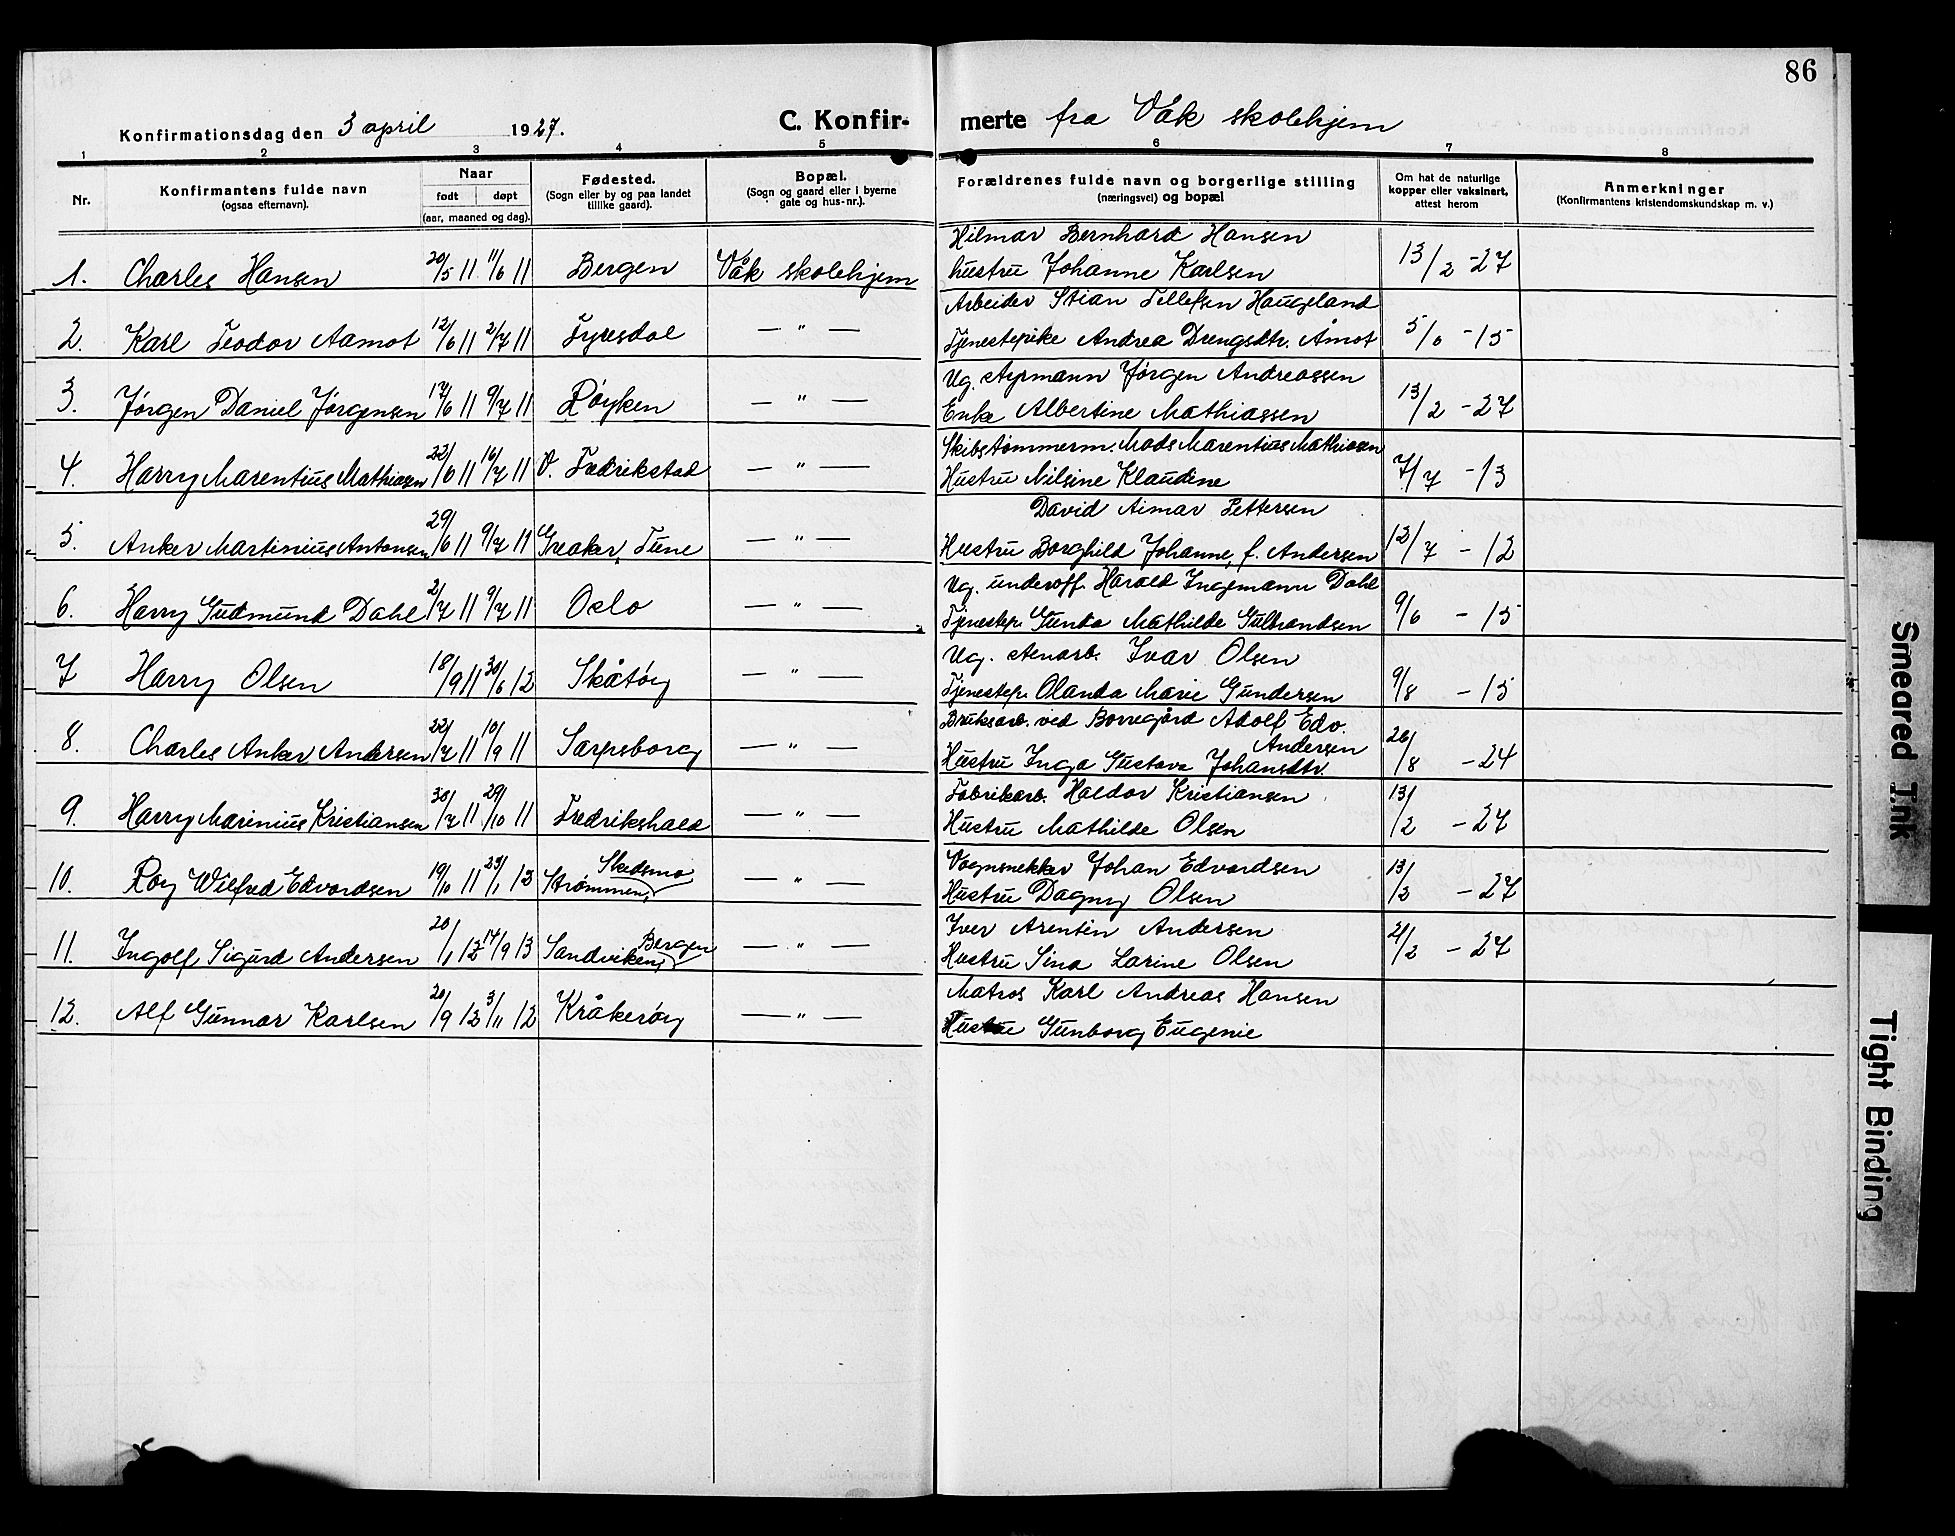 86
Konfirmationsdag den 3 april 1927. C. Konfirmerte fra Våk skolehjem
1 2 3 4 5 6 7 8
Nr. Konfirmantens fulde navn (ogsaa efternavn). Naar født døpt (aar, maaned og dag). Fødested. (Sogn eller by og paa landet tillike gaard). Bopæl. (Sogn og gaard eller i byerne gate og hus-nr.). Forældrenes fulde navn og borgerlige stilling (næringsvei) og bopæl Om hat de naturlige kopper eller vaksinert, attest herom Anmerkninger (Konfirmantens kristendomskundskap m. v.)
Hilmar Bernhard Hansen
1. Charles Hansen 20/5 11 11/6 11 Bergen Våk skolehjem hustru Johanne Karlsen 13/2 - 27
Arbeider Stian Tellefsen Haugeland
2. Karl Teodor Aamot 12/6 11 2/7 11 Fyresdal — " — Tjenestepike Andrea Drengsdtr. Åmot 5/6 - 15
Ug. Styrmann Jørgen Andreassen
3. Jørgen Daniel Jørgensen 17/6 11 9/7 11 Røyken — " — Enke Albertine Mathiassen 13/2 - 27
Skibstømmerm. Mads Marentius Mathiasen
4. Harry Marentius Mathiasen 22/6 11 16/7 11 V. Fredrikstad — " — Hustru Nilsine Klaudine 7/7 - 13
David Aimar Pettersen
5. Anker Martinius Antonsen 29/6 11 9/7 11 Greaker, Tune — " — Hustru Borghild Johanne, f. Andersen 12/7 - 12
Ug. underoff. Harald Ingemann Dahl
6. Harry Gudmund Dahl 2/7 11 9/7 11 Oslo — " — Tjenestep. Gunda Mathilde Gulbrandsen 9/6 - 15
Ug. stenarb. Ivar Olsen
7 Harry Olsen 18/9 11 30/6 12 Skåtøy — " — Tjenestep. Olanda Marie Gundersen 9/8 - 15
Bruksarb. ved Borregård Adolf Edv. Andersen
8. Charles Anker Andersen 22/7 11 10/9 11 Sarpsborg — " — Hustru Inga Gustava Johansdtr. 26/8 - 24
Fabrikarb. Haldor Kristiansen
9. Harry Marinius Kristiansen 30/7 11 29/10 11 Fredrikshald — " — Hustru Mathilde Olsen 13/2 - 27
Vognsnekker Johan Edvardsen
10. Roy Wilfred Edvardsen 19/10 11 /1 12 Strømmen, Skedsmo — " — Hustru Dagny Olsen 13/2 - 27
Iver Arentin Andersen
11. Ingolf Sigurd Andersen 20/1 12 14/9 13 Sandviken, Bergen — " — Hustru Sina Larine Olsen 21/2 - 27
Matros Karl Andreas Hansen
12. Alf Gunnar Karlsen 20/9 12 3/11 12 Kråkerøy — " — Hustru Gunborg Eugenie
Smeared Ink
Tight Binding